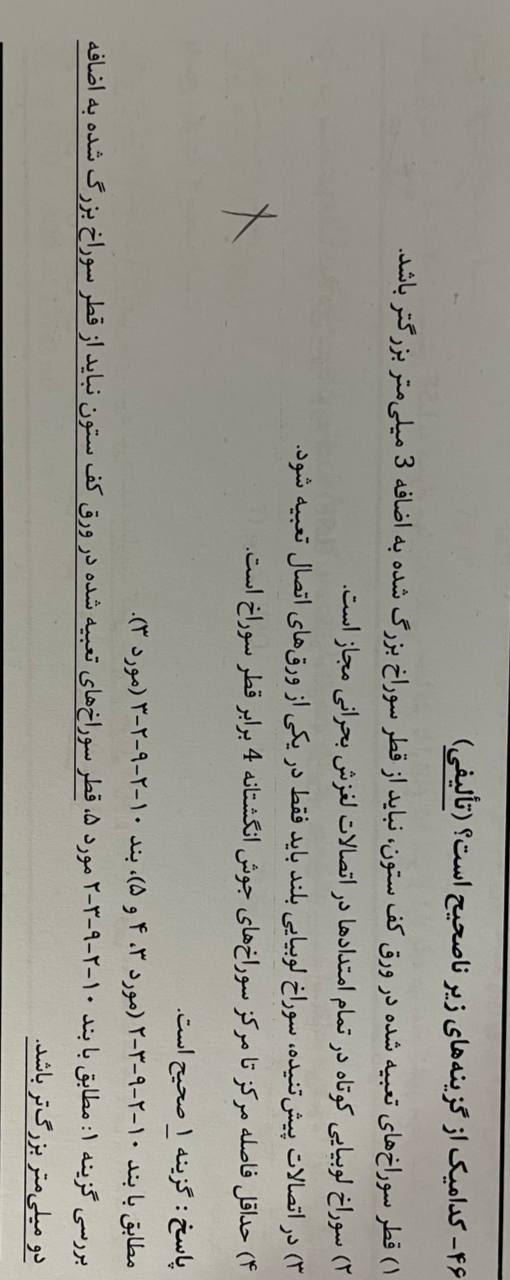 ۴۶- کدامیک از گزینه‌های زیر ناصحیح است؟ (تألیفی)
۱) قطر سوراخ‌های تعبیه شده در ورق کف ستون، نباید از قطر سوراخ بزرگ شده به اضافه 3 میلی‌متر بزرگتر باشد.
۲) سوراخ لوبیایی کوتاه در تمام امتدادها در اتصالات لغزش بحرانی مجاز است.
۳) در اتصالات پیش‌تنیده، سوراخ لوبیایی بلند باید فقط در یکی از ورق‌های اتصال تعبیه شود.
۴) حداقل فاصله مرکز تا مرکز سوراخ‌های جوش انگشتانه 4 برابر قطر سوراخ است.
پاسخ : گزینه ۱ صحیح است.
مطابق با بند ۱۰-۲-۹-۳-۲ (مورد ۳، ۴ و ۵)، بند ۱۰-۲-۹-۲-۳ (مورد ۳).
بررسی گزینه ۱: مطابق با بند ۱۰-۲-۹-۳-۲ مورد ۵، قطر سوراخ‌های تعبیه شده در ورق کف ستون نباید از قطر سوراخ بزرگ شده به اضافه
دو میلی‌متر بزرگ‌تر باشد.